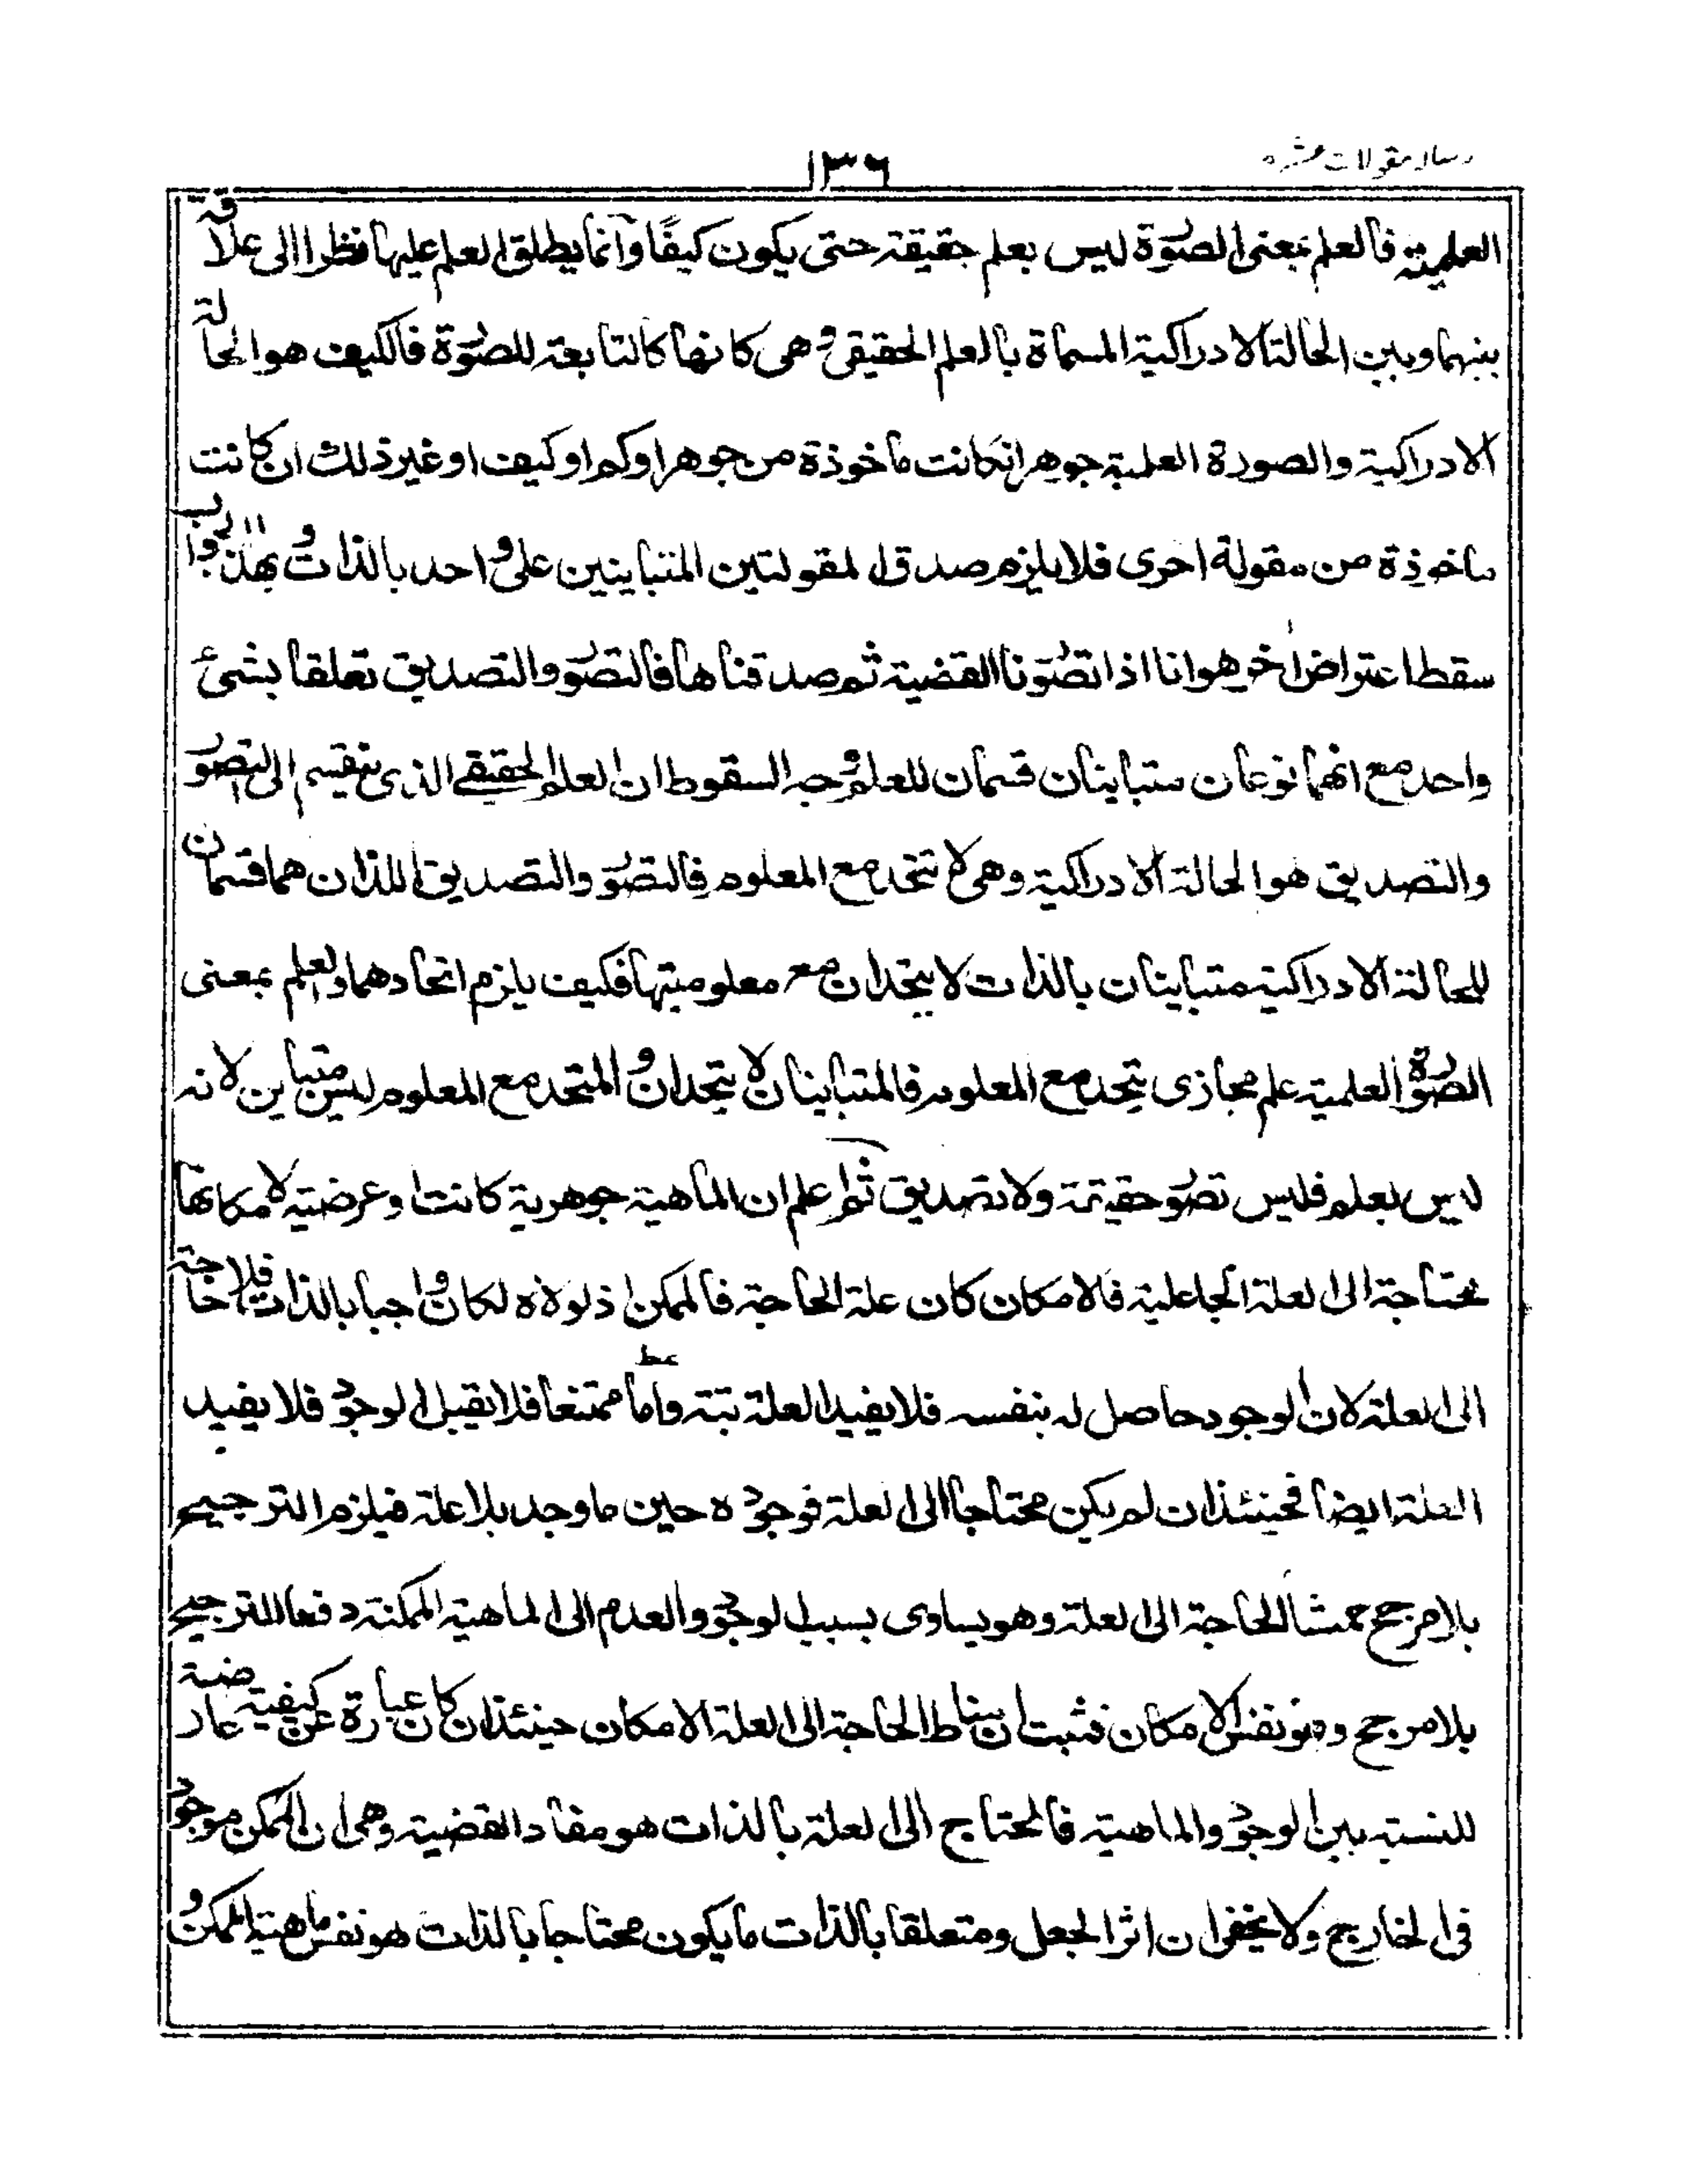 رساله مقولات عشره
١٣٦
العلمية فالعلم بمعنى الصورة ليس بعلم حقيقة حتى يكون كيفًا وانما يطلق العلم عليها نظرا الى علاقة
بينهما وبين الحالة الادراكية المسماة بالعلم الحقيقى وهى كانها كالتابعة للصورة فالكيف هو الحالة
الادراكية والصورة العلمية جوهر انكانت ماخوذة من جوهر او كم او كيف او غير ذلك ان كانت
ماخوذة من مقولة اخرى فلا يلزم صدق المقولتين المتباينين على واحد بالذات وبهذا الجواب
سقط اعتراض اخر هو انا اذا تصورنا القضية ثم صدقناها فالتصور والتصديق تعلقا بشئ
واحد مع انهما نوعان متباينان قسمان للعلم وجه السقوط ان العلم الحقيقے الذى ينقسم الى التصور
والتصديق هو الحالة الادراكية وهى لا تتحد مع المعلوم فالتصور والتصديق اللذان هما قسمان
للحالة الادراكية متباينان بالذات لا يتحدان مع معلوميتها فكيف يلزم اتحادهما والعلم بمعنى
الصورة العلمية علم مجازى يتحد مع المعلوم فالمتباينان لا يتحدان والمتحد مع المعلوم ليس متباين لانه
ليس بعلم فليس تصور حقيقة ولا تصديق ثم اعلم ان الماهية جوهرية كانت او عرضية لامكانها
محتاجة الى العلة الجاعلية فالامكان كان علة الحاجة فالممكن اذ لولاه لكان واجبا بالذات فلا حاجة
الى العلة لان الوجود حاصل له بنفسه فلا يفيد العلة بتة واما ممتنعا فلا يقبل الوجود فلا يفيد
العلة ايضا فحينئذ ان لم يكن محتاجا الى العلة فوجوده حين ما وجد بلا علة فيلزم الترجيح
بلا مرجح فمنشا الحاجة الى العلة وهو يساوى بسبب الوجود والعدم الى الماهية الممكنة دفعا للترجيح
بلا مرجح وهو نفس الامكان فثبت ان مناط الحاجة الى العلة الامكان حينئذ ان كان عبارة عن كيفية عارضة
للنسبة بين الوجود والماهية فالمحتاج الى العلة بالذات هو مفاد القضية وهى ان الممكن موجود
فى الخارج ولا يخفى ان اثر الجعل ومتعلقا بالذات ما يكون محتاجا بالذات هو نفس ماهية الممكن و